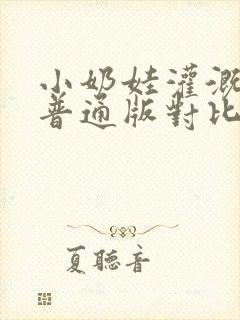 小奶娃灌溉
普通版對比
夏聽音